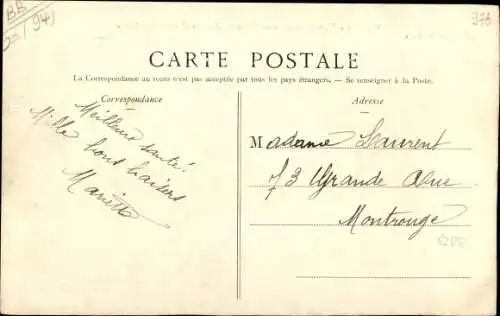 BB
94)
376
CARTE POSTALE
La Correspondance au recto n'est pas acceptée par tous les pays étrangers. — Se renseigner à la Poste.
Correspondance
Meilleure santé!
Mille bons baisers
Adresse
Madame Laurent
73 Grande Rue
Montrouge